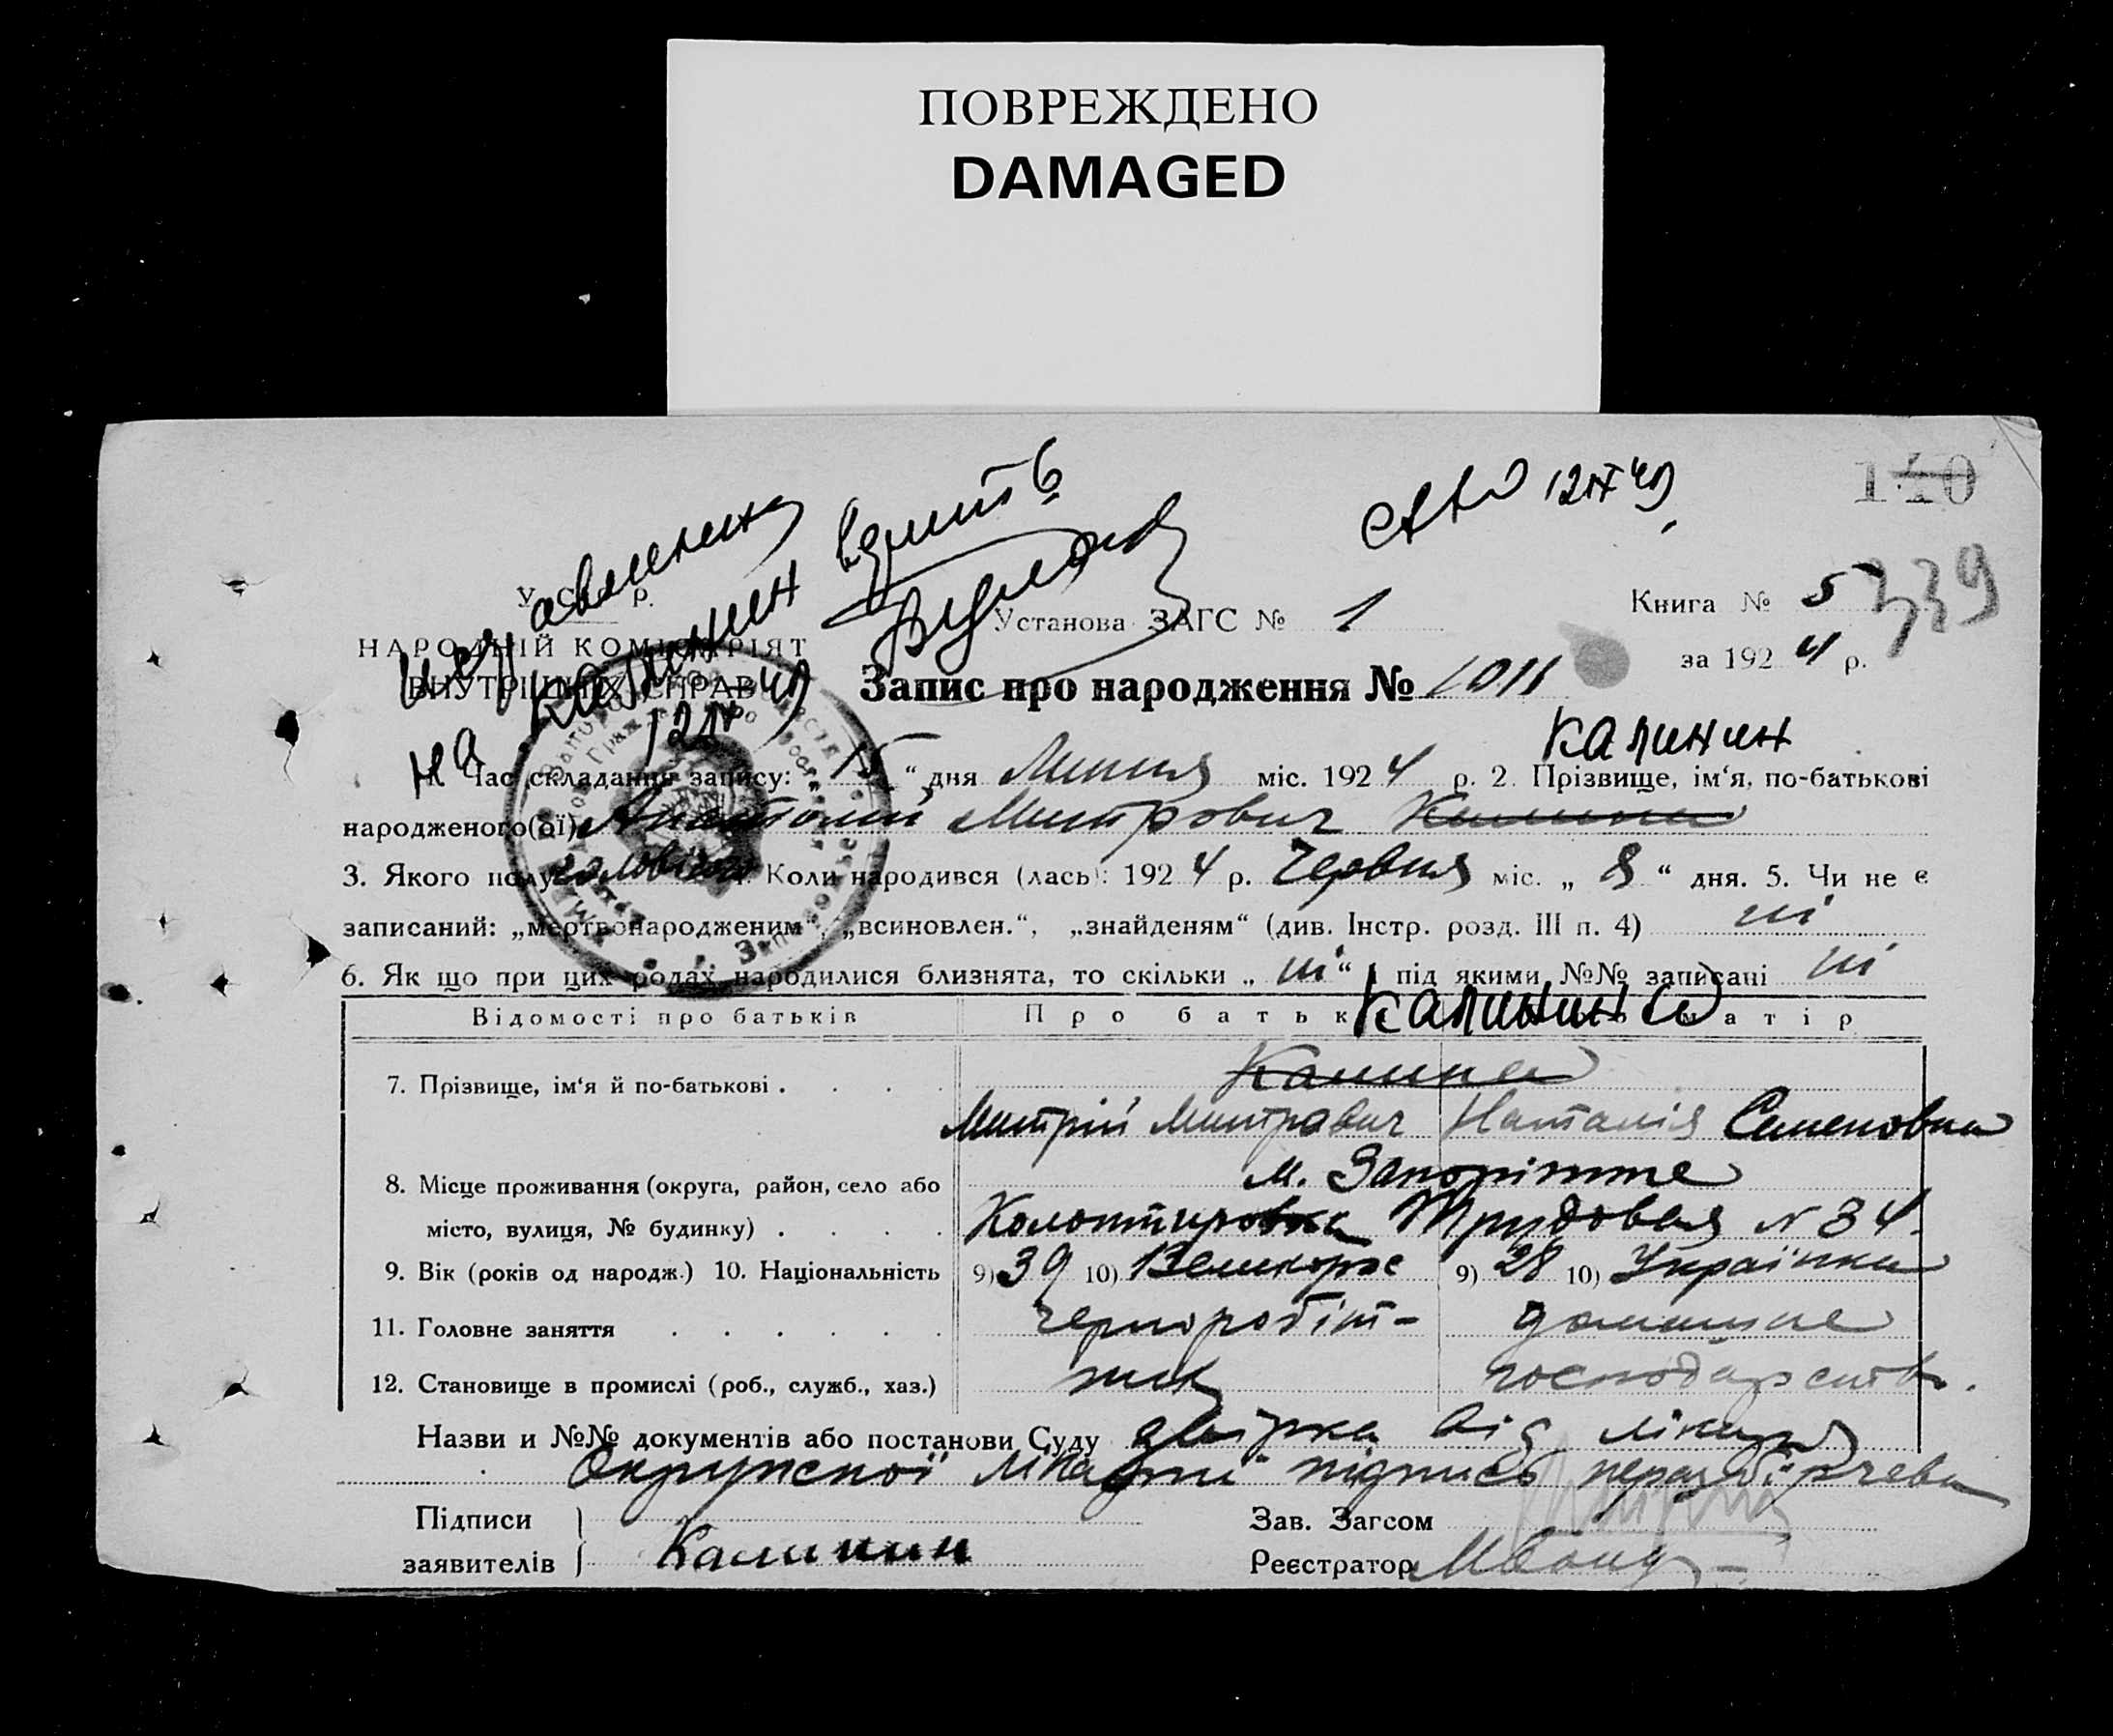 ПОВРЕЖДЕНО
DAMAGED
140
САО 12 IX 49
У. С. Р. Р.
НАРОДНІЙ КОМІСАРІЯТ
ВНУТРІШНІХ СПРАВ
исправлению
на Калинин верить
12 IX 49
Установа ЗАГС № 1
Книга № 5
339
за 1924 р.
Запис про народження № 1011
Калинин
Час складання запису: 15 " дня Липня міс. 1924 р. 2. Прізвище, ім'я, по-батькові
народженого(ої) Анатолий Митрович Калина
3. Якого полу чоловічої Коли народився (лась): 1924 р. Червня міс. „ 8 " дня. 5. Чи не є
записаний: „мертвонародженим", „всиновлен.", „знайденям" (див. Інстр. розд. III п. 4) ні
6. Як що при цих родах народилися близнята, то скільки „ ні " і під якими №№ записані ні
Відомості про батьків Про батька Про матір
Калинин(ы)
7. Прізвище, ім'я й по-батькові . . . . Калина
Митрій Митрович Наталія Семеновна
8. Місце проживання (округа, район, село або м. Запоріжже
місто, вулиця, № будинку) . . . . Трудовая № 34.
9. Вік (років од народж.) 10. Національність 9) 39 10) Великорос 9) 28 10) Українка
11. Головне заняття . . . . . . чорноробіт- домашнє
12. Становище в промислі (роб., служб., хаз.) ник господарство.
Назви и №№ документів або постанови Суду довірка від лікаря
Окружної лікарні підпись неразбірчева
Підписи
заявителів Калинин
Зав. Загсом
Реєстратор